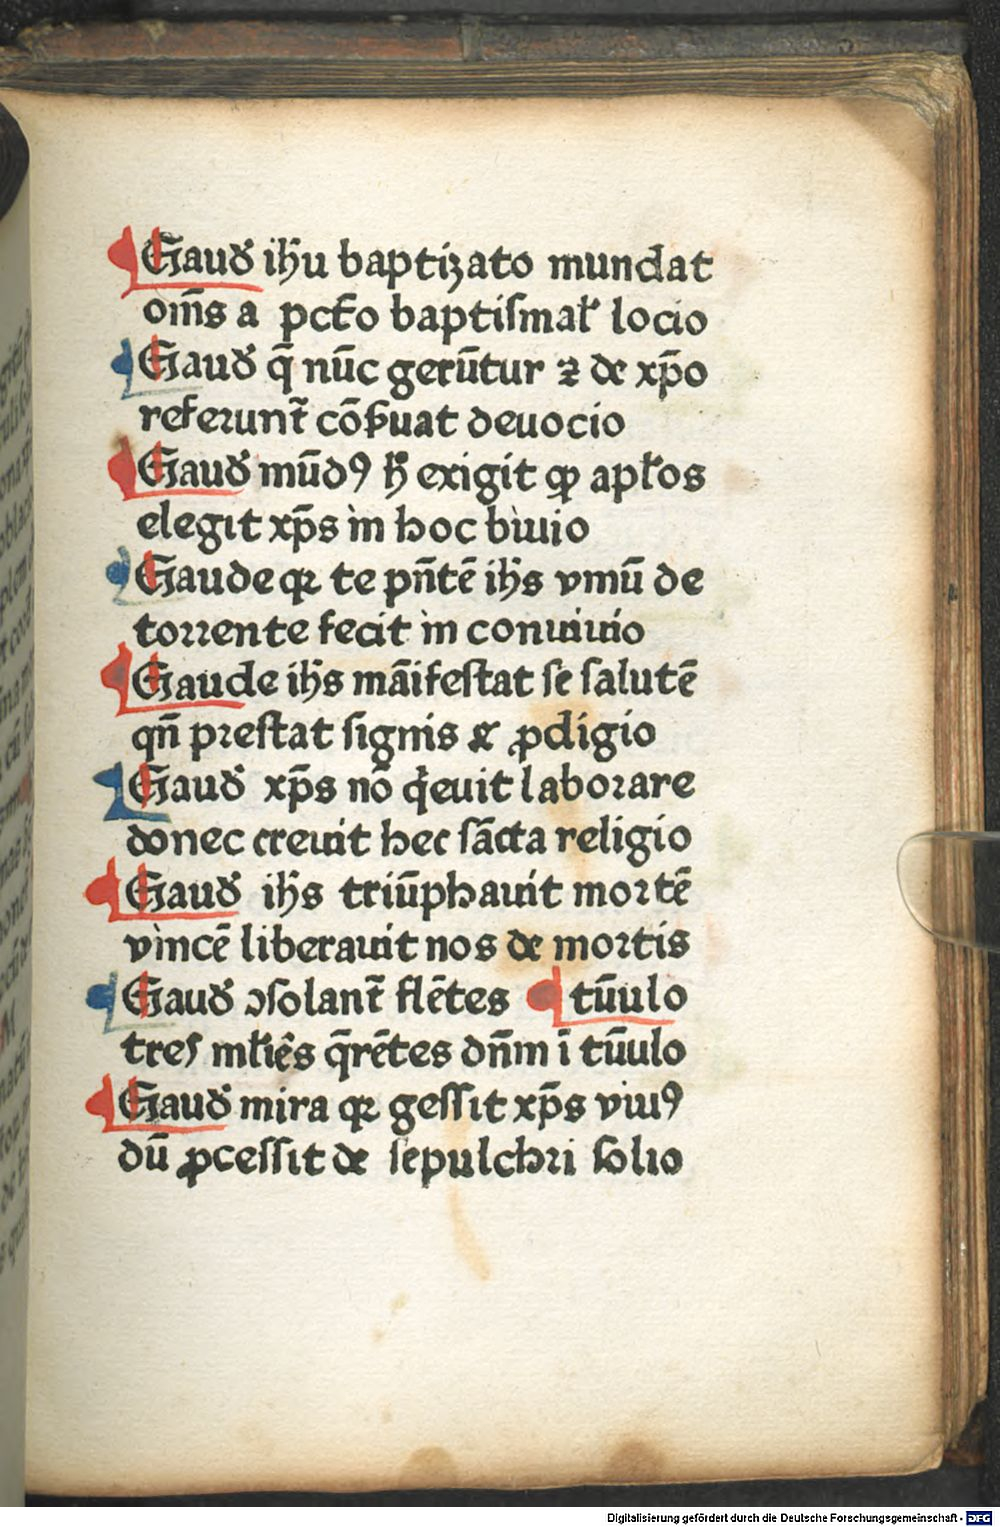 Gaud ih̄u baptiȝato mundat
om̄s a pctōo baptiſmal' locio
Gaud q̄ nūc gerūtur ⁊ de xp̄o
referunt̄ cōſuat deuocio
Gaud mūdꝰ h̄ exigit ꝙ apl'os
elegit xp̄s in hoc biuio
Gaude qꝛ te pn̄tē ih̄s vinū de
toꝛꝛente fecit in conuiuio
Gaude ih̄s māifeſtat ſe ſalutē
qn̄ pꝛeſtat ſignis & ꝓdigio
Gaud xp̄s nō q̇euit laboꝛare
donec creuit hec ſācta religio
Gaud ih̄s triūphauit moꝛtē
vincē liberauit nos de moꝛtis
Gaud ↄſolant̄ flētes ¶ tūulo
tres ml'iēs q̄rētes dn̄m ī tūulo
Gaud mira qꝛ geſſit xp̄s viuꝰ
dū ꝓceſſit de ſepulchꝛi ſolio
Digitalisierung gefördert durch die Deutsche Forschungsgemeinschaft - DFG